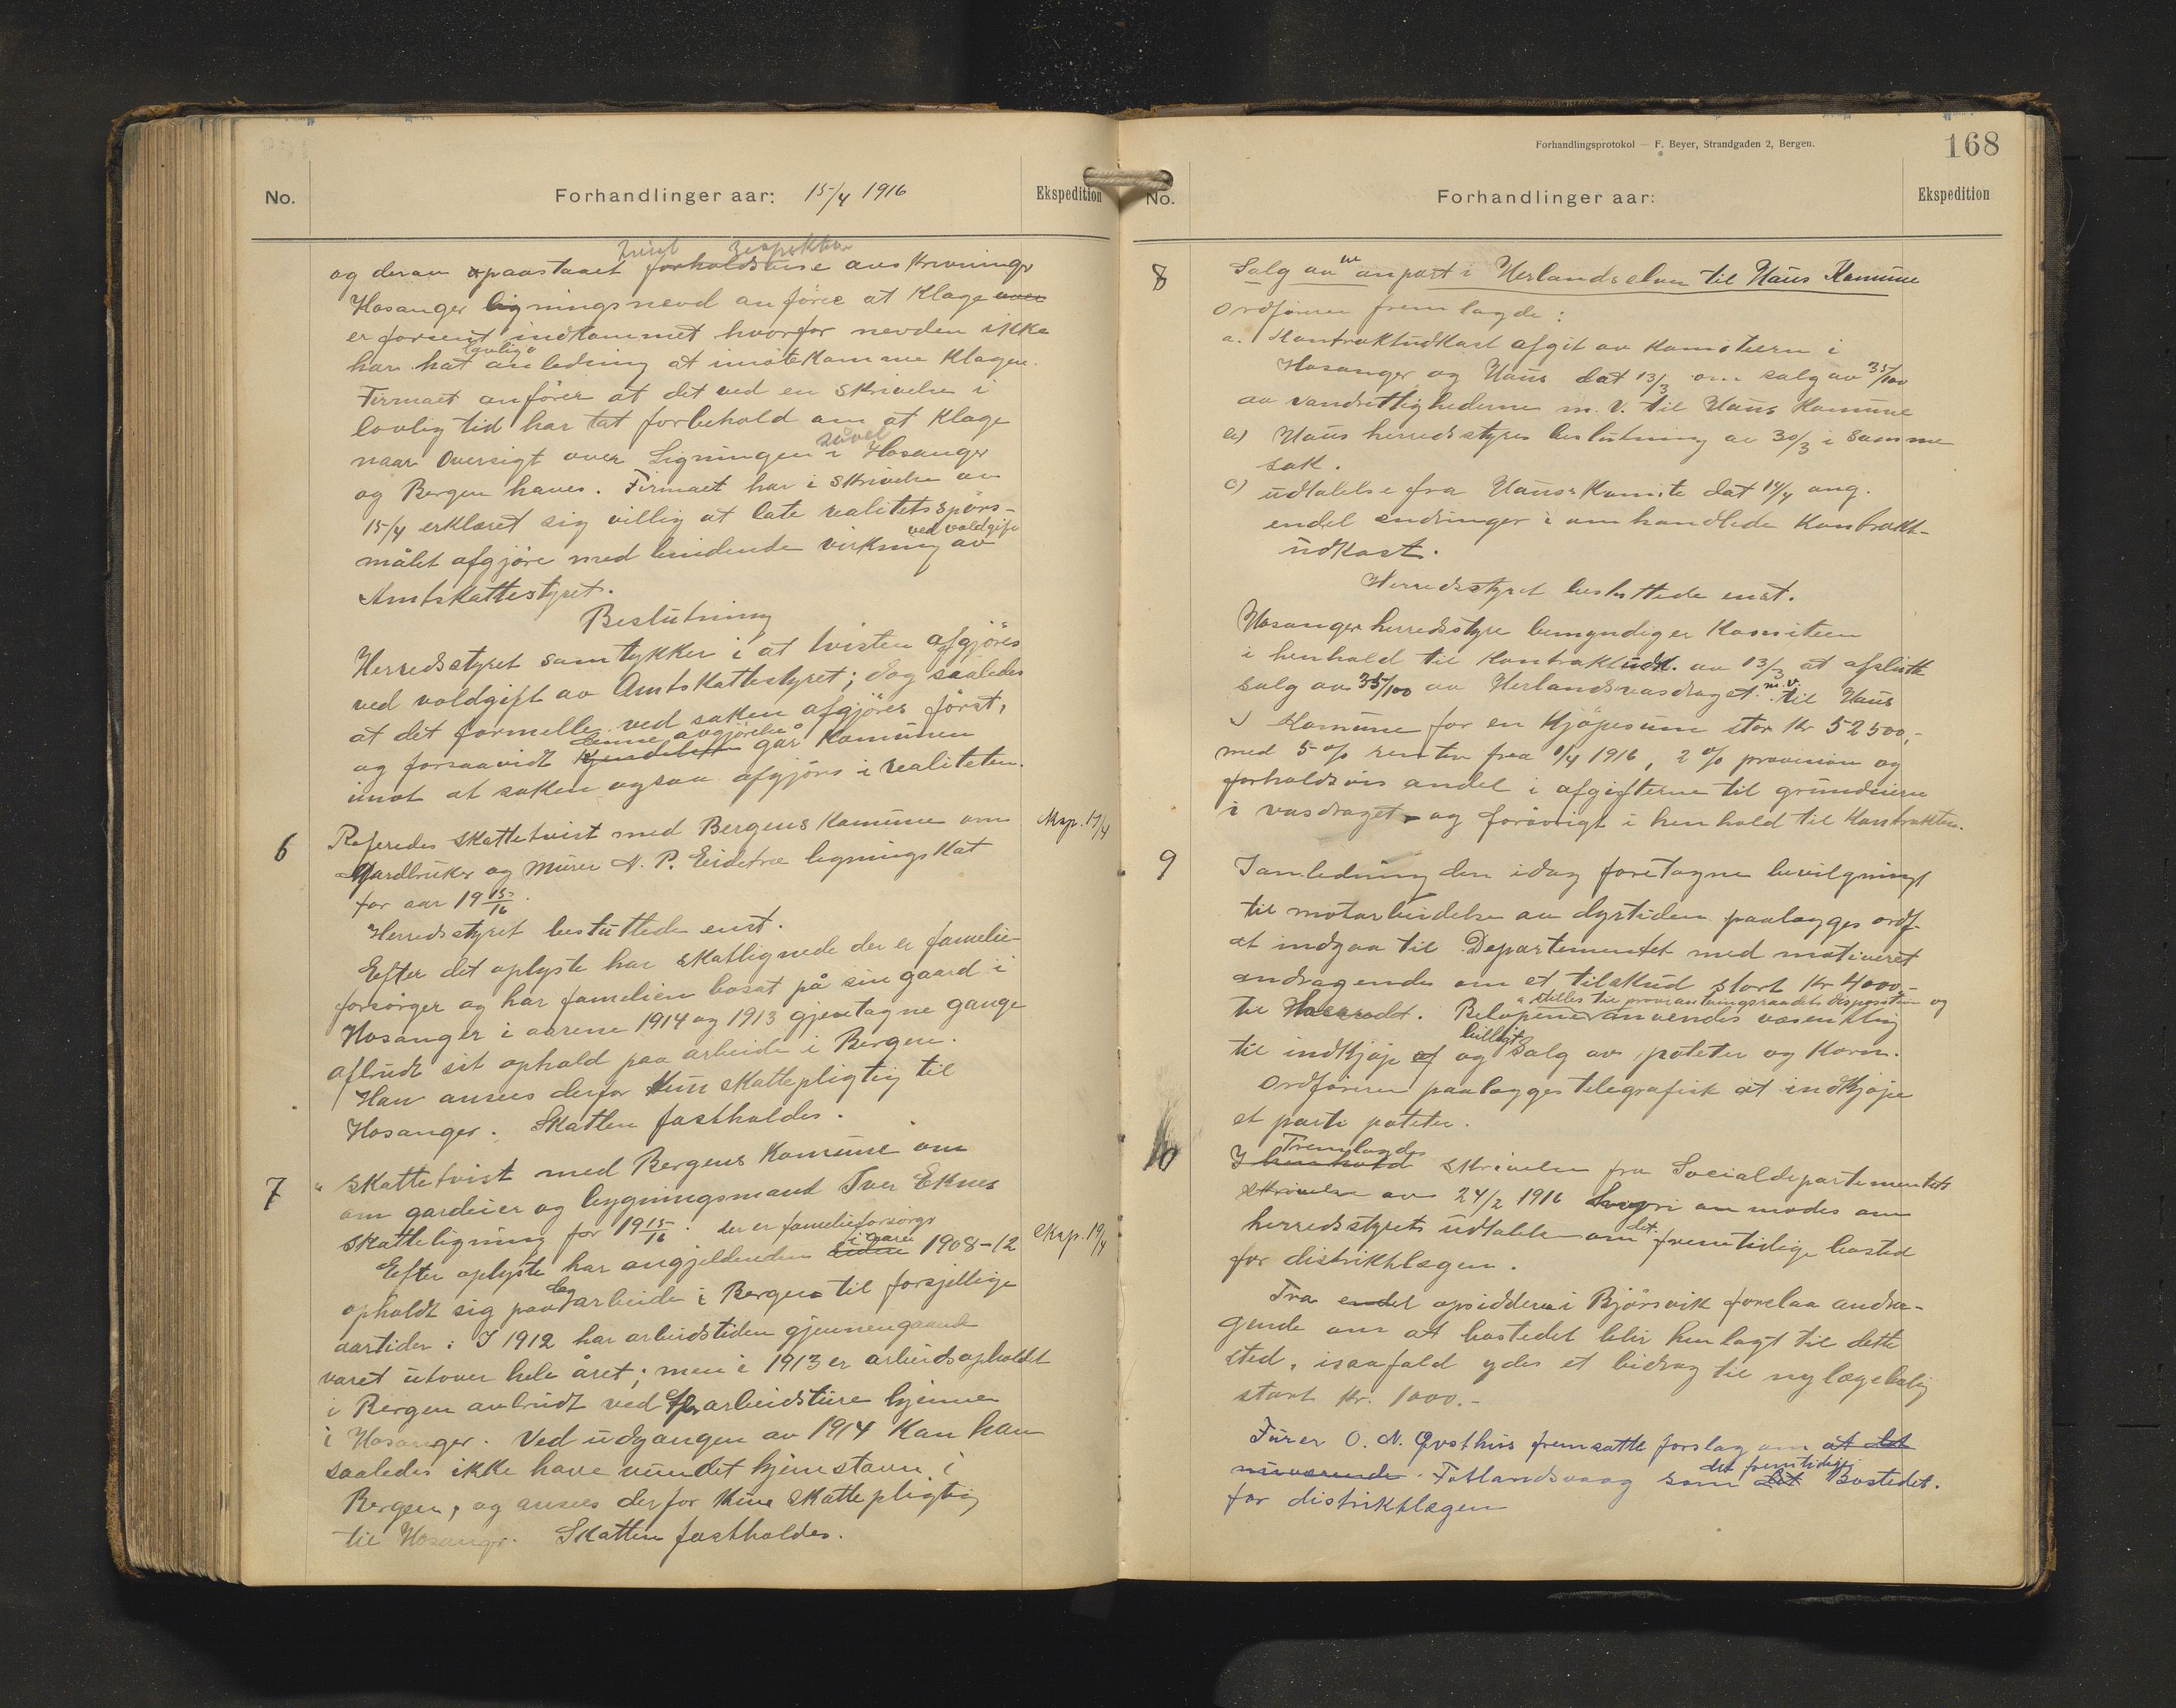 No.
Forhandlinger aar: 15/4 1916
Ekspedition
og derav paastaaet forholdsvise avskrivninger
Hosanger ligningsnevd anförer at Klage over
er forsent indkommet hvorfor nevden ikke
har hat lovlig anledning at imötekomme Klagen.
Firmaet anförer at det ved en skrivelse i
lovlig tid har tat forbehold om at Klage
naar Oversigt over Ligningen såvel i Hosanger
og Bergen haves. Firmaet har i skrivelse av
15/4 erklæret sig villig at late realitetsspörs-
målet afgjöre med bindende virkning ved voldgift av
Amtskattestyret.
Beslutning
Herredsstyret samtykker i at tvisten afgjöres
ved voldgift av Amtskattestyret; dog saaledes
at det formelle ved saken afgjöres först,
og forsaavidt Kjendelsen denne avgjörelse går Komunen
imot at saken ogsaa afgjöres i realiteten.
6 Referedes skattetvist med Bergens Komune om Eksp. 19/4
Gardbruker og Murer N. P. Eidetræ ligningskat
for aar 19 15/16.
Herredsstyret besluttede enst.
Efter det oplyste har skatlignede der er familie-
forsörger og har familien bosat på sin gaard i
Hosanger i aarene 1914 og 1913 gjentagne gange
afbrudt sit ophold paa arbeide i Bergen.
Han ansees derfor kun skattepligtig til
Hosanger. Skatten fastholdes.
7 Skattetvist med Bergens Komune om
om gardeier og bygningsmand Iver Eknes
skatteligning for 19 15/16. der er familieforsörger
Efter oplyste har angjeldende siden i aarene 1908-12 Eksp. 19/4
opholdt sig paa dag arbeide i Bergen til forsjellige
aartider: I 1912 har arbeidstiden gjennemgaaende
varet utover hele året; men i 1913 er arbeidsopholdet
i Bergen avbrudt ved arbeidsture hjemme
i Hosanger. Ved udgangen av 1914 Kan han
saaledes ikke have vundet hjemstavn i
Bergen, og ansees derfor kun skattepligtig
til Hosanger. Skatten fastholdes.
Forhandlingsprotokol — F. Beyer, Strandgaden 2, Bergen.
168
No.
Forhandlinger aar:
Ekspedition
8 Salg av en anpart i Herlandselven til Haus Komune
Ordföreren fremlagde:
a. Kontraktudkast afgit av Komiteern i
Hosanger og Haus dat 13/3 om salg av 35/100
av vandrettighederne m.v. til Haus Komune
Haus herredsstyres beslutning av 30/3 i samme
sak.
c) udtalelse fra Haus Komite dat 14/4 ang.
endel endringer i omhandlede Kontrakt-
udkast.
Herredsstyret besluttede enst.
Hosanger herredsstyre bemyndiger Komiteen
i henhold til Kontraktudk. av 13/3 at afslutte
salg av 35/100 av Herlandsvasdraget m.v. til Haus
Komune for en Kjöpesum stor Kr 52500,-
med 5 % renter fra 1/4 1916, 2 % provision og
forholdsvis andel i afgifterne til grundeiere
i vasdraget og forövrigt i henhold til Kontrakten.
9 I anledning den idag foretagne bevilgning
til motarbeidelse av dyrtiden paalægges ordf.
at indgaa til Departementet med motiveret
andragende om et tilskud stort Kr 4000,-
til Herredet. Belöpene stilles til provianteringsraadets disposition og anvendes væsentlig
til indkjöp af og billigst salg av poteter og Korn.
Ordföreren paalægges telegrafisk at indkjöpe
et parti poteter.
10 I henhold Fremlagdes skrivelse fra Socialdepartementets
skrivelse av 24/2 1916 hvori anmodes om
herredsstyrets udtalelse om det fremtidige bosted
for distriktslægen.
Fra endel opsiddere i Bjørsvik forelaa andra-
gende om at bostedet blir henlagt til dette
sted, isaafald ydes et bidrag til ny lægebolig
stort Kr. 1000.-
Furer O. N. Qvsthus fremsatte forslag om at det
nuværende Fotlandsvaag som det det fremtidige Bostedet.
for distriktslægen